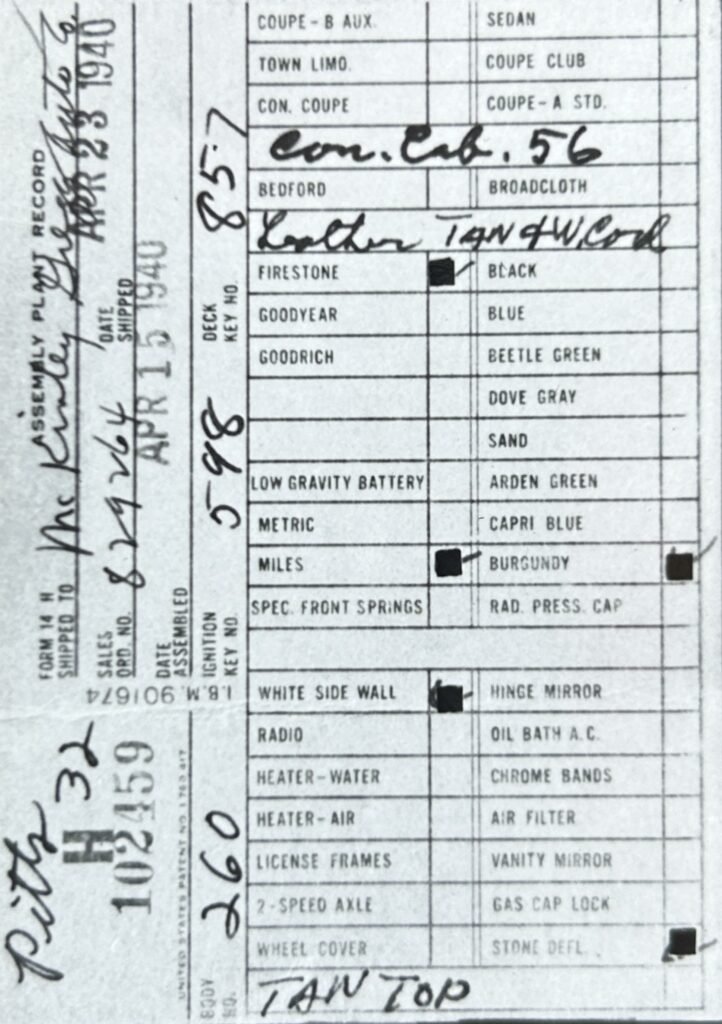 FORM 14 H ASSEMBLY PLANT RECORD
SHIPPED TO Mc Kinley Gregg Auto Co.
SALES ORD. NO. 829264
DATE SHIPPED APR 23 1940
DATE ASSEMBLED APR 15 1940
IGNITION KEY NO. 598
DECK KEY NO. 857
I.B.M. 901674
Pitts 32
H
102459
UNITED STATES PATENT NO. 1 780 417
BODY NO. 260
COUPE-B AUX. SEDAN
TOWN LIMO. COUPE CLUB
CON. COUPE COUPE-A STD.
Con. Cab. 56
BEDFORD BROADCLOTH
Leather TAN & W. Cord
FIRESTONE BLACK
GOODYEAR BLUE
GOODRICH BEETLE GREEN
DOVE GRAY
SAND
LOW GRAVITY BATTERY ARDEN GREEN
METRIC CAPRI BLUE
MILES BURGUNDY
SPEC. FRONT SPRINGS RAD. PRESS. CAP
WHITE SIDE WALL HINGE MIRROR
RADIO OIL BATH A.C.
HEATER-WATER CHROME BANDS
HEATER-AIR AIR FILTER
LICENSE FRAMES VANITY MIRROR
2-SPEED AXLE GAS CAP LOCK
WHEEL COVER STONE DEFL.
TAN TOP